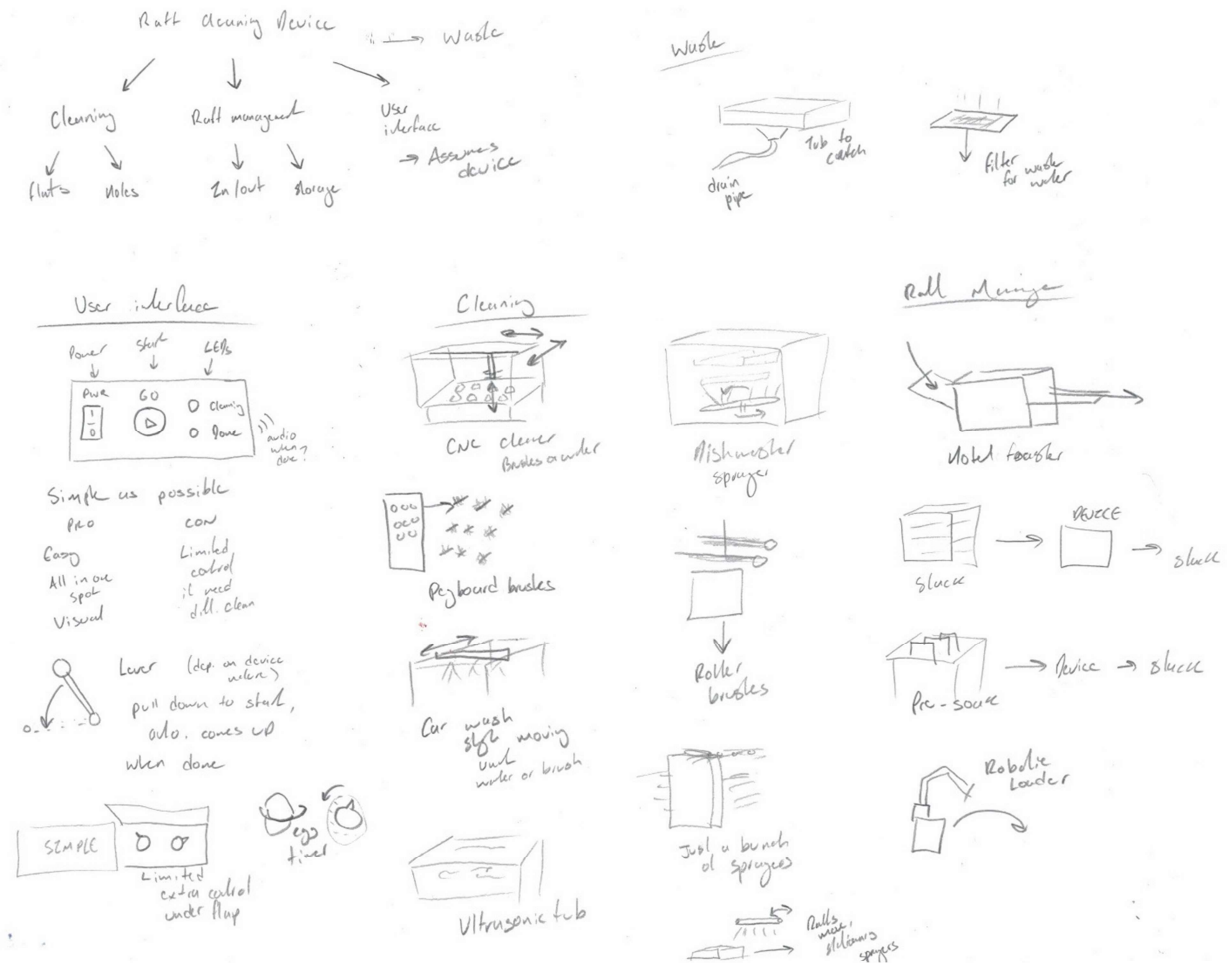 Raft Cleaning Device
→ Waste
Cleaning
Raft management
User
interface
→ Assumes
device
flats
Holes
In/out
storage
Waste
Tub to
catch
drain
pipe
filter
for waste
water
User interface
Power
Start
LEDs
PWR
GO
I
O
Cleaning
Done
audio
when
done?
Simple as possible
PRO
CON
Easy
All in one
spot
Visual
Limited
control
if need
diff. clean
Lever (dep. on device
pull down to start,
auto. comes up
when done
SIMPLE
Limited
extra control
under flap
egg
timer
Cleaning
CNC cleaner
Brushes or water
Pegboard brushes
Car wash
style moving
unit
water or brush
Ultrasonic tub
Dishwasher
sprayer
Roller
brushes
Just a bunch
of sprayers
Rafts
move,
stationary
sprayers
Raft Manage
Hotel toaster
Stack
DEVICE
stack
Pre-soak
Device → stack
Robotic
Loader